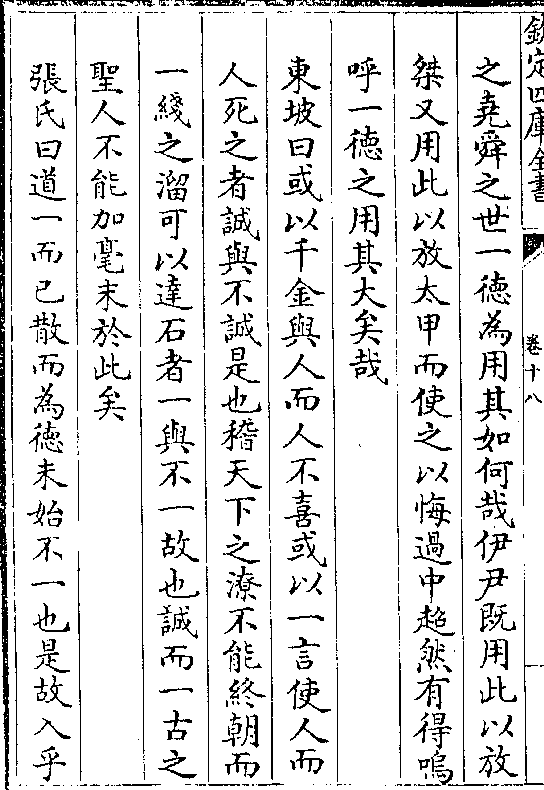 欽定四庫全書
卷十八
之堯舜之世一德為用其如何哉伊尹既用此以放
桀又用此以放太甲而使之以悔過中超然有得嗚
呼一德之用其大矣哉
東坡曰或以千金與人而人不喜或以一言使人而
人死之者誠與不誠是也稽天下之潦不能終朝而
一綫之溜可以達石者一與不一故也誠而一古之
聖人不能加毫末於此矣
張氏曰道一而已散而為德未始不一也是故入乎